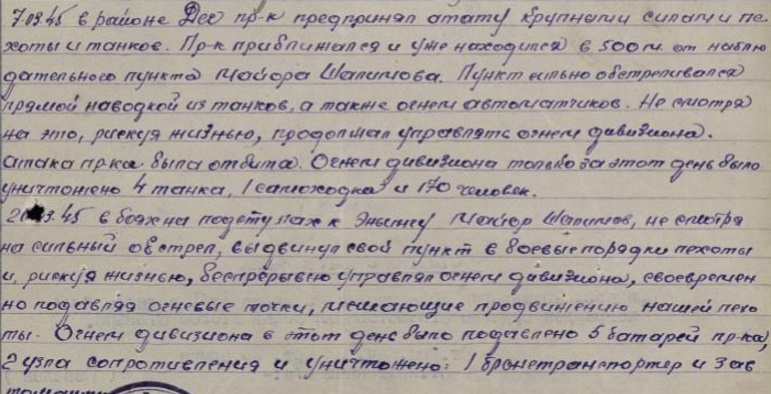 7.03.45 в районе Дег пр-к предпринял атаку крупными силами пе-
хоты и танков. Пр-к приближался и уже находился в 500 м. от наблю
дательного пункта майора Шалимова. Пункт сильно обстреливался
прямой наводкой из танков, а также огнем автоматчиков. Не смотря
на это, рискуя жизнью, продолжал управлять огнем дивизиона.
Атака пр-ка была отбита. Огнем дивизиона только за этот день было
уничтожено 4 танка, 1 самоходка и 170 человек.
03.45 в боях на подступах к Эньингу майор Шалимов, не смотря
на сильный обстрел, выдвинул свой пункт в боевые порядки пехоты
и, рискуя жизнью, беспрерывно управлял огнем дивизиона, своевремен
но подавляя огневые точки, мешающие продвижению нашей пехо
ты. Огнем дивизиона в этот день было подавлено 5 батарей пр-ка,
2 узла сопротивления и уничтожено: 1 бронетранспортер и 3 ав